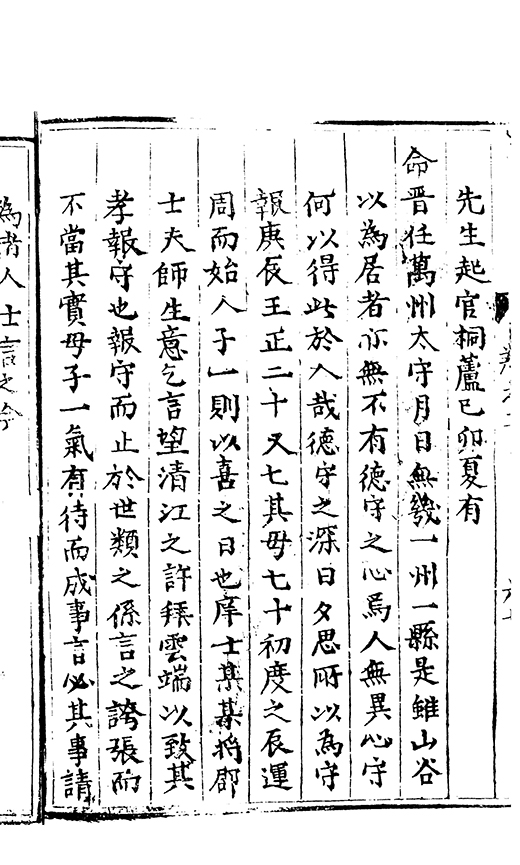 先生起官桐蘆已卯夏有
命晋任萬州太守月日無幾一州一縣是雖山谷
以為居者亦無不有德守之心焉人無異心守
何以得此於人哉德守之深日夕思所以為守
報庚辰王正二十又七其母七十初度之辰運
周而始人子一則以喜之日也庠士某某將郡
士夫師生意乞言望清江之許拜雲端以致其
孝報守也報守而止於世類之係言之誇張而
不當其實母子一氣有待而成事言必其事請
為諸人士言之